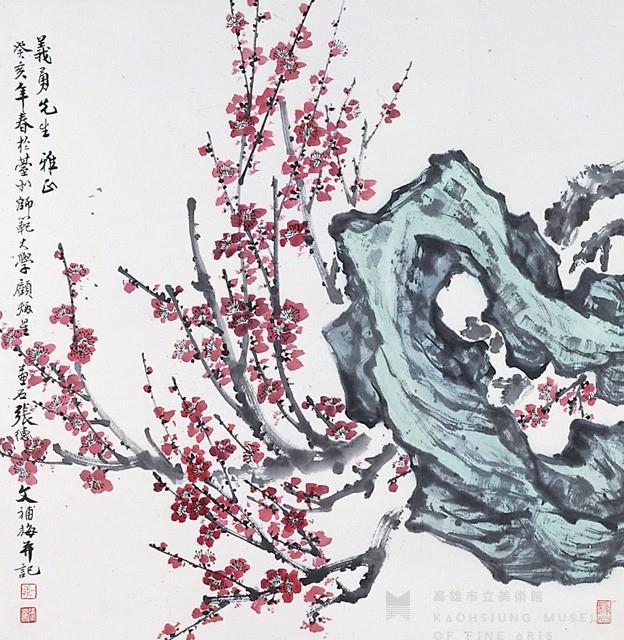 義勇先生雅正
癸亥年春於臺北師範大學顧炳星畫石張德文補梅并記
高雄市立美術館
KAOHSIUNG MUSEUM
OF FINE ARTS